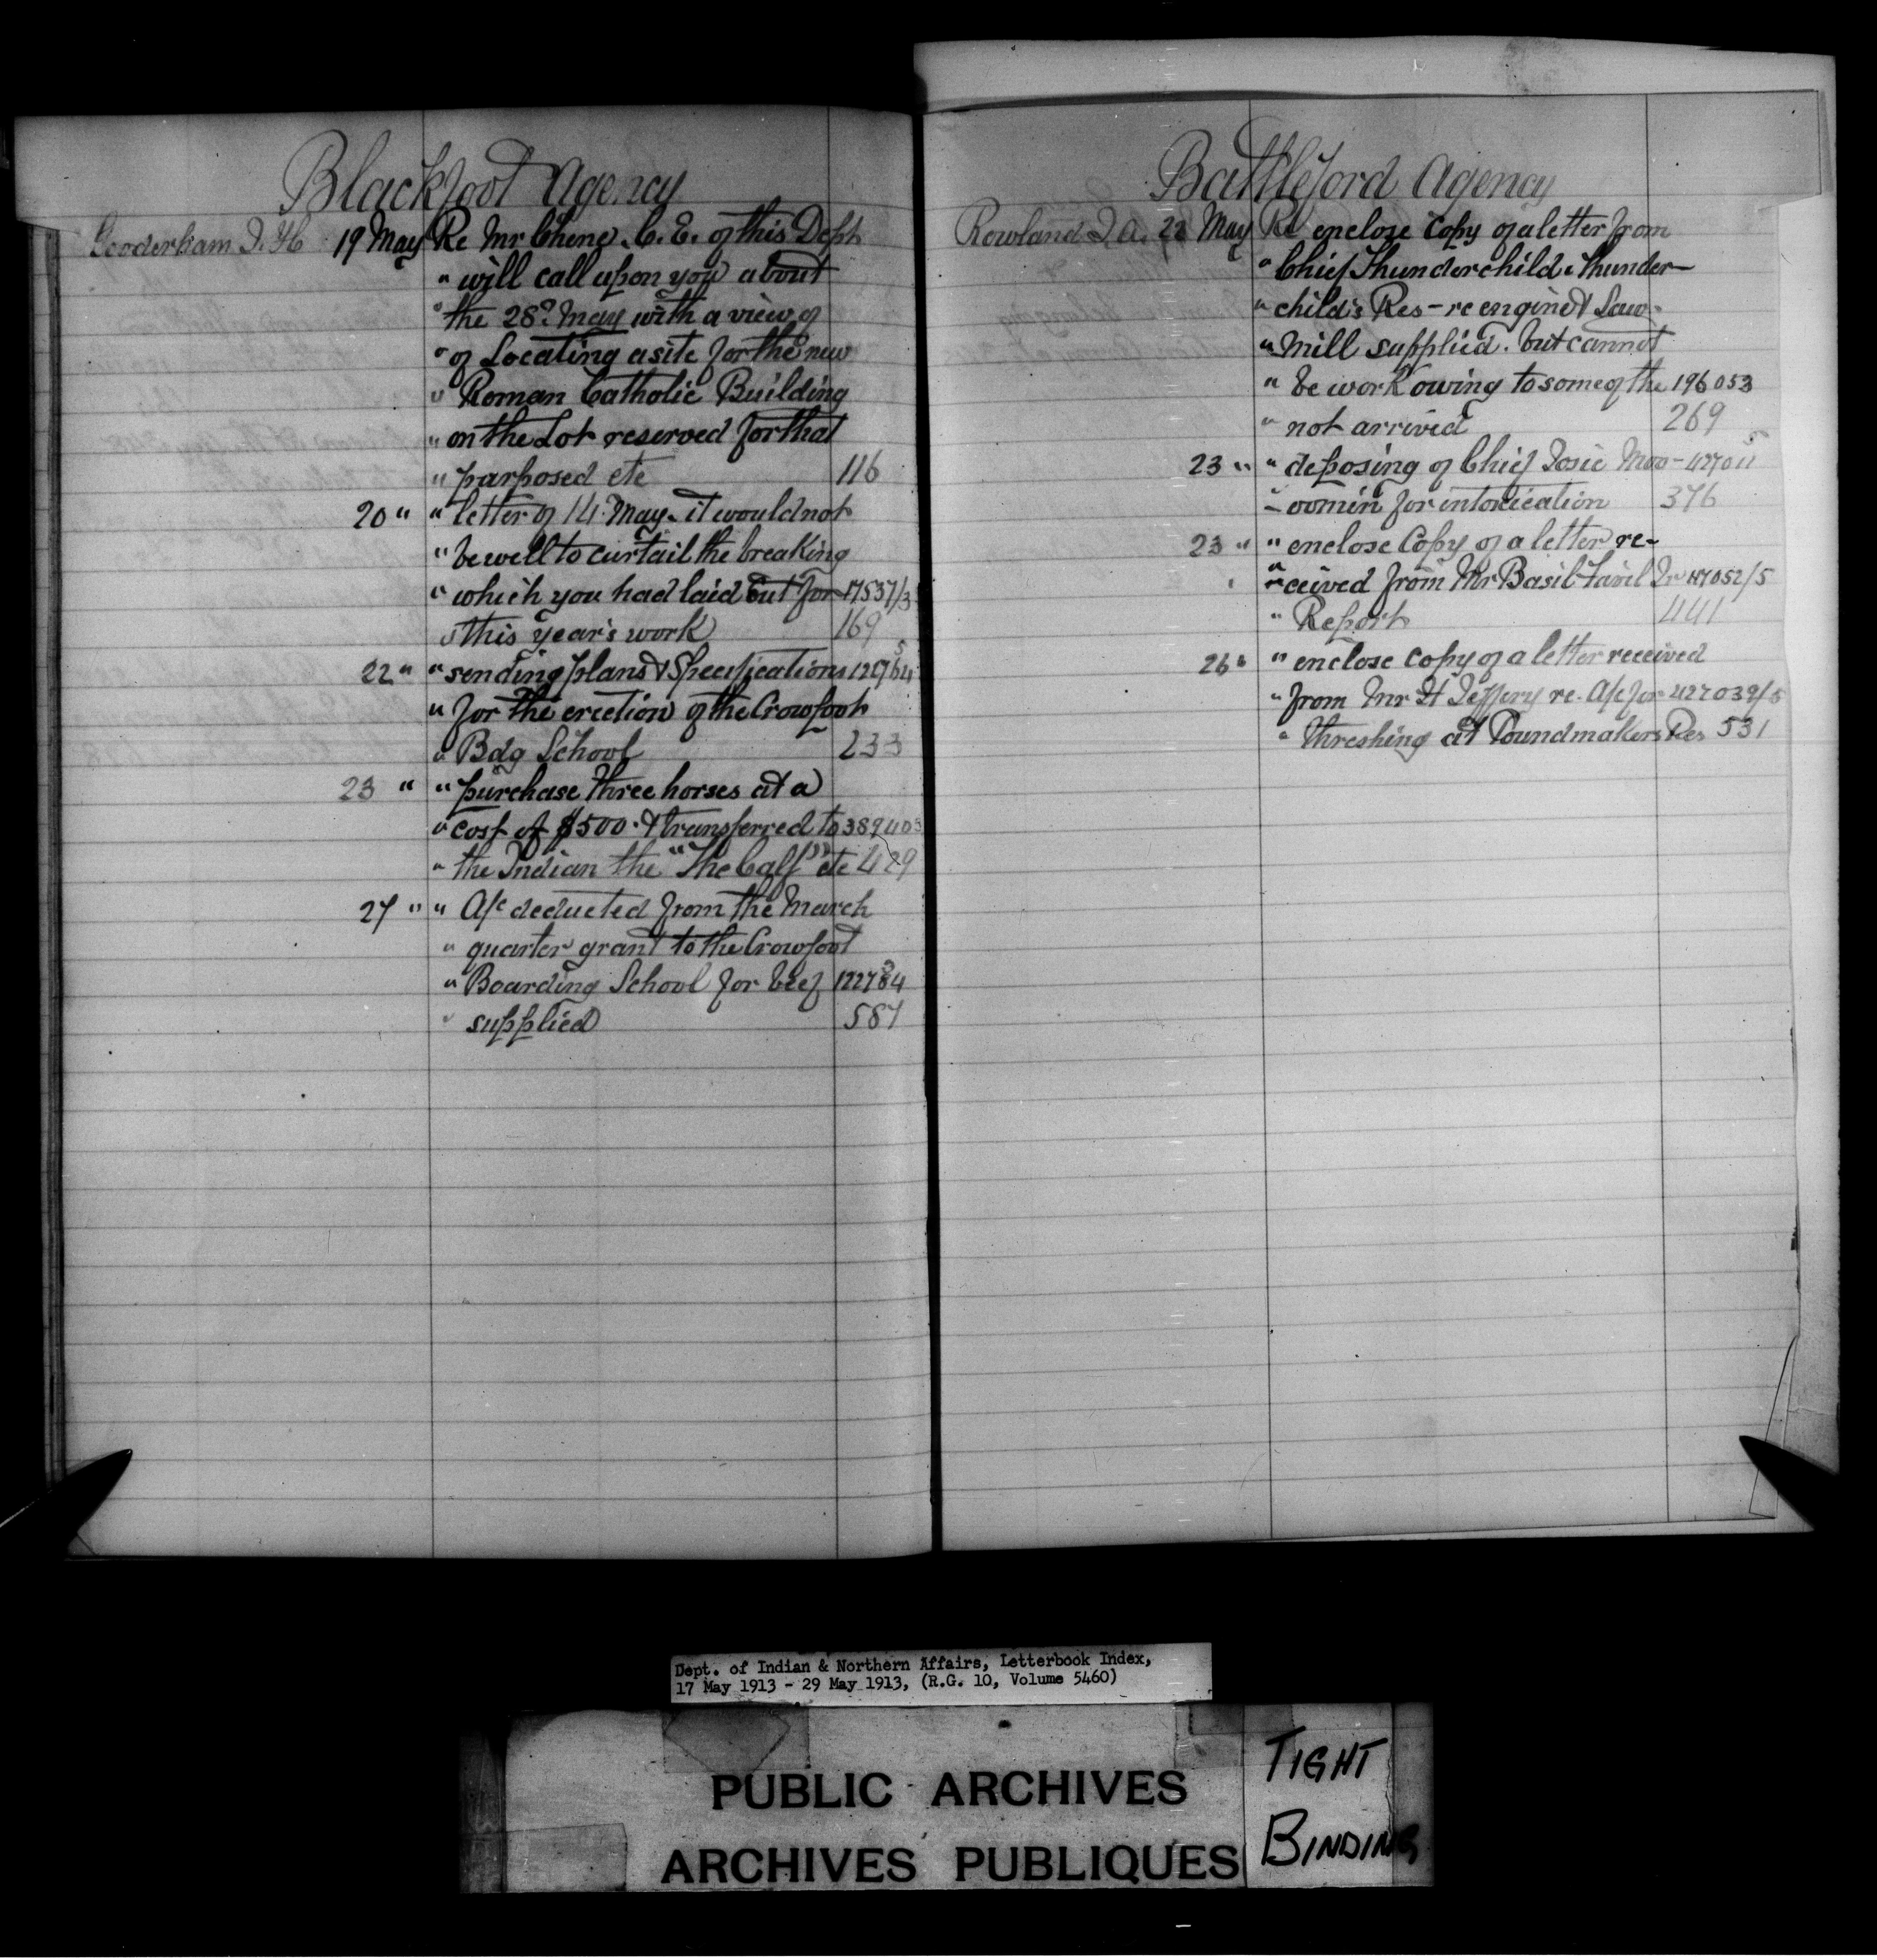 Blackfoot Agency
Gooderham J. H. 19 May Re Mr Chene. C. E. of this Dept
" will call upon you about
" the 28th May with a view of
" of Locating a site for the new
" Roman Catholic Building
" on the Lot reserved for that
" parposed etc 116
20 " " letter of 14 May - it would not
" be well to curtail the breaking
" which you had laid out for 17537/3
" this year's work 169
22 " " sending plans & Specifications
" for the erection of the Crowfoot
" Bdg School 233
23 " " purchase three horses at a
" cost of $500. & transferred to 389403
" the Indian the "The Calf" etc 429
27 " " A/c deducted from the March
" quarter grant to the Crowfoot
" Boarding School for beef
" supplied 587
Battleford Agency
Rowland J. A. 22 May Re enclose Copy of a letter from
" Chief Thunderchild. Thunder-
" child's Res - re engine & Saw-
" Mill supplied. but cannot
" be work owing to some of the 196053
" not arrived 269
23 " " deposing of Chief Josie Moo-
- oomin for intoxication 376
23 " " enclose Copy of a letter re-
" ceived from Mr Basil
" Report 441
26 " " enclose copy of a letter received
" from Mr H Jeffery re. A/c for 427039/5
" threshing at Poundmakers Res 531
Dept. of Indian & Northern Affairs, Letterbook Index,
17 May 1913 - 29 May 1913, (R.G. 10, Volume 5460)
PUBLIC ARCHIVES
ARCHIVES PUBLIQUES
TIGHT
BINDING